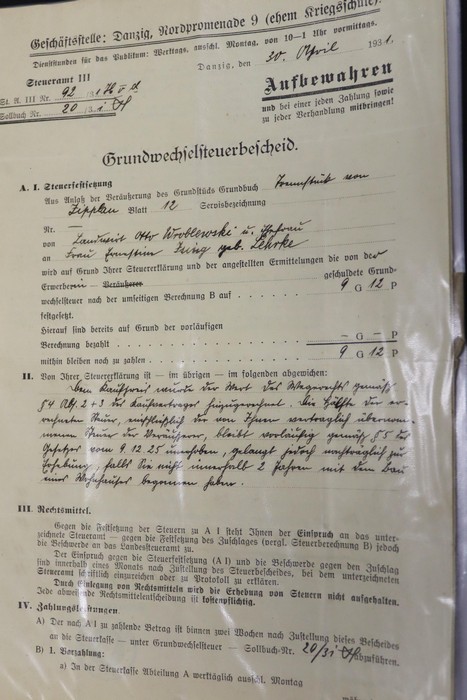 Geschäftsstelle: Danzig, Nordpromenade 9 (ehem Kriegsschule).
Dienststunden für das Publikum: Werktags, ausschl. Montag, von 10–1 Uhr vormittags.
Steueramt III
Danzig, den 30. April 1931.
St. R. III Nr. 92
Sollbuch Nr. 20
Aufbewahren
und bei einer jeden Zahlung sowie
zu jeder Verhandlung mitbringen!
Grundwechselsteuerbescheid.
A. I. Steuerfestsetzung
Aus Anlaß der Veräußerung des Grundstücks Grundbuch Trennstück von
Zipplau Blatt 12 Servisbezeichnung
Nr. —
von Landwirt Otto Wroblewski u. Ehefrau
an Frau Ernstine Jung geb. Lehrke
wird auf Grund Ihrer Steuererklärung und der angestellten Ermittelungen die von der
Erwerberin – Veräußerer geschuldete Grund-
wechselsteuer nach der umseitigen Berechnung B auf 9 G 12 P
festgesetzt.
Hierauf sind bereits auf Grund der vorläufigen
Berechnung bezahlt – G – P
mithin bleiben noch zu zahlen 9 G 12 P
II. Von Ihrer Steuererklärung ist — im übrigen — im folgenden abgewichen:
Dem Kaufpreis wurde der Wert des Wegerechts gemäß
§4 Abs. 2+3 des Kaufvertrages hinzugerechnet. Die Hälfte der er-
rechneten Steuer, einschließlich der von Ihnen vertraglich übernom-
menen Steuer der Veräußerer, bleibt vorläufig gemäß §5 des
Gesetzes vom 9.12.25 unerhoben, gelangt jedoch nachträglich zur
Erhebung, falls Sie nicht innerhalb 2 Jahren mit dem Bau
eines Wohnhauses begonnen haben.
III. Rechtsmittel.
Gegen die Festsetzung der Steuern zu A I steht Ihnen der Einspruch an das unter-
zeichnete Steueramt — gegen die Festsetzung des Zuschlages (vergl. Steuerberechnung B) jedoch
die Beschwerde an das Landessteueramt zu.
Der Einspruch gegen die Steuerfestsetzung (A I) und die Beschwerde gegen den Zuschlag
sind innerhalb eines Monats nach Zustellung des Steuerbescheides, bei dem unterzeichneten
Steueramt schriftlich einzureichen oder zu Protokoll zu erklären.
Durch Einlegung von Rechtsmitteln wird die Erhebung von Steuern nicht aufgehalten.
Jede abweisende Rechtsmittelentscheidung ist kostenpflichtig.
IV. Zahlungsleistungen
A) Der nach A I zu zahlende Betrag ist binnen zwei Wochen nach Zustellung dieses Bescheides
an die Steuerkasse — unter Grundwechselsteuer — Sollbuch-Nr. 20/31 abzuführen.
B) 1. Barzahlung:
a) In der Steuerkasse Abteilung A werktäglich ausschl. Montag